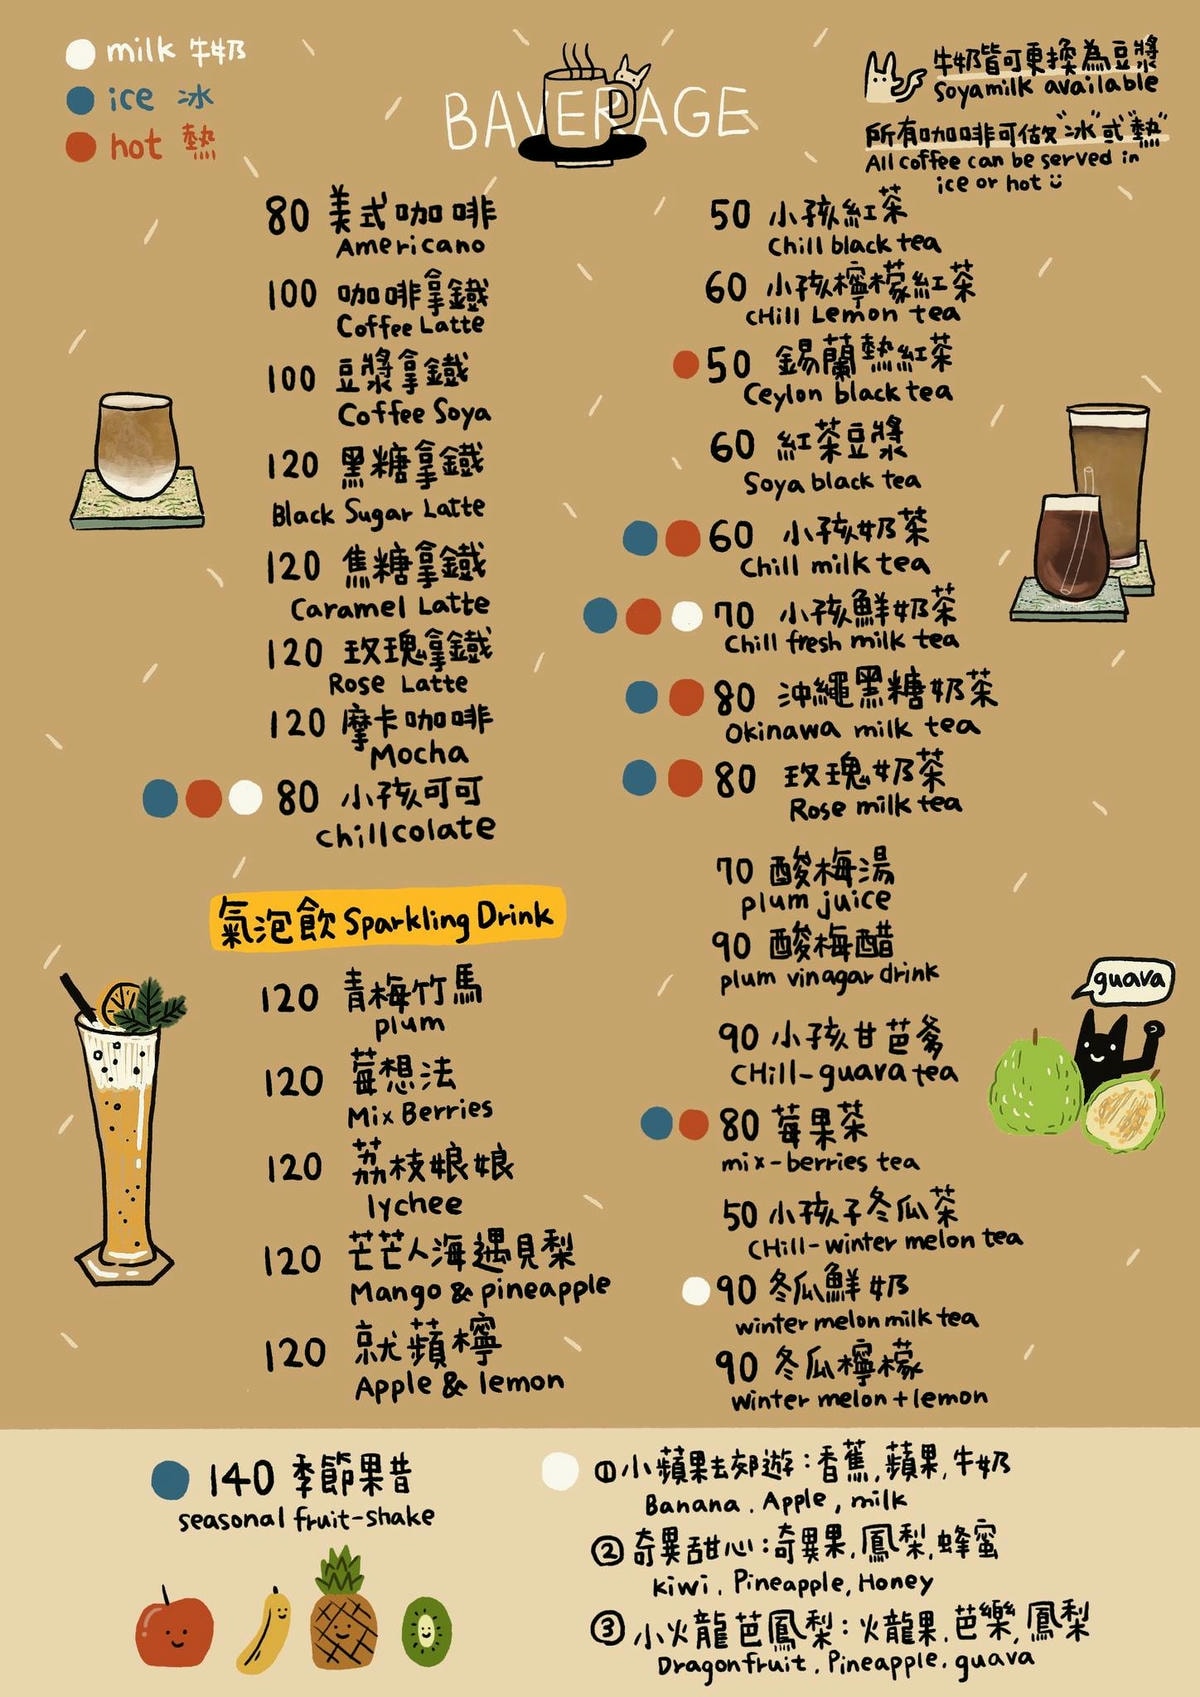 milk 牛奶
ice 冰
hot 熱
BAVERAGE
牛奶皆可更換為豆漿
Soyamilk available
所有咖啡可做"冰"或"熱"
All coffee can be served in
ice or hot
80 美式咖啡
Americano
100 咖啡拿鐵
Coffee Latte
100 豆漿拿鐵
Coffee Soya
120 黑糖拿鐵
Black Sugar Latte
120 焦糖拿鐵
Caramel Latte
120 玫瑰拿鐵
Rose Latte
120 摩卡咖啡
Mocha
80 小孩可可
chillcolate
氣泡飲 Sparkling Drink
120 青梅竹馬
plum
120 莓想法
Mix Berries
120 荔枝娘娘
lychee
120 芒芒人海遇見梨
Mango & pineapple
120 就蘋檸
Apple & lemon
50 小孩紅茶
Chill black tea
60 小孩檸檬紅茶
CHill Lemon tea
50 錫蘭熱紅茶
Ceylon black tea
60 紅茶豆漿
Soya black tea
60 小孩奶茶
Chill milk tea
70 小孩鮮奶茶
Chill fresh milk tea
80 沖繩黑糖奶茶
Okinawa milk tea
80 玫瑰奶茶
Rose milk tea
70 酸梅湯
plum juice
90 酸梅醋
plum vinagar drink
90 小孩甘芭爹
CHill-guava tea
guava
80 莓果茶
mix-berries tea
50 小孩子冬瓜茶
CHill-winter melon tea
90 冬瓜鮮奶
winter melon milk tea
90 冬瓜檸檬
winter melon + lemon
140 季節果昔
seasonal fruit-shake
①小蘋果去郊遊：香蕉, 蘋果, 牛奶
Banana, Apple, milk
②奇異甜心：奇異果, 鳳梨, 蜂蜜
kiwi, Pineapple, Honey
③小火龍芭鳳梨：火龍果, 芭樂, 鳳梨
Dragonfruit, Pineapple, guava